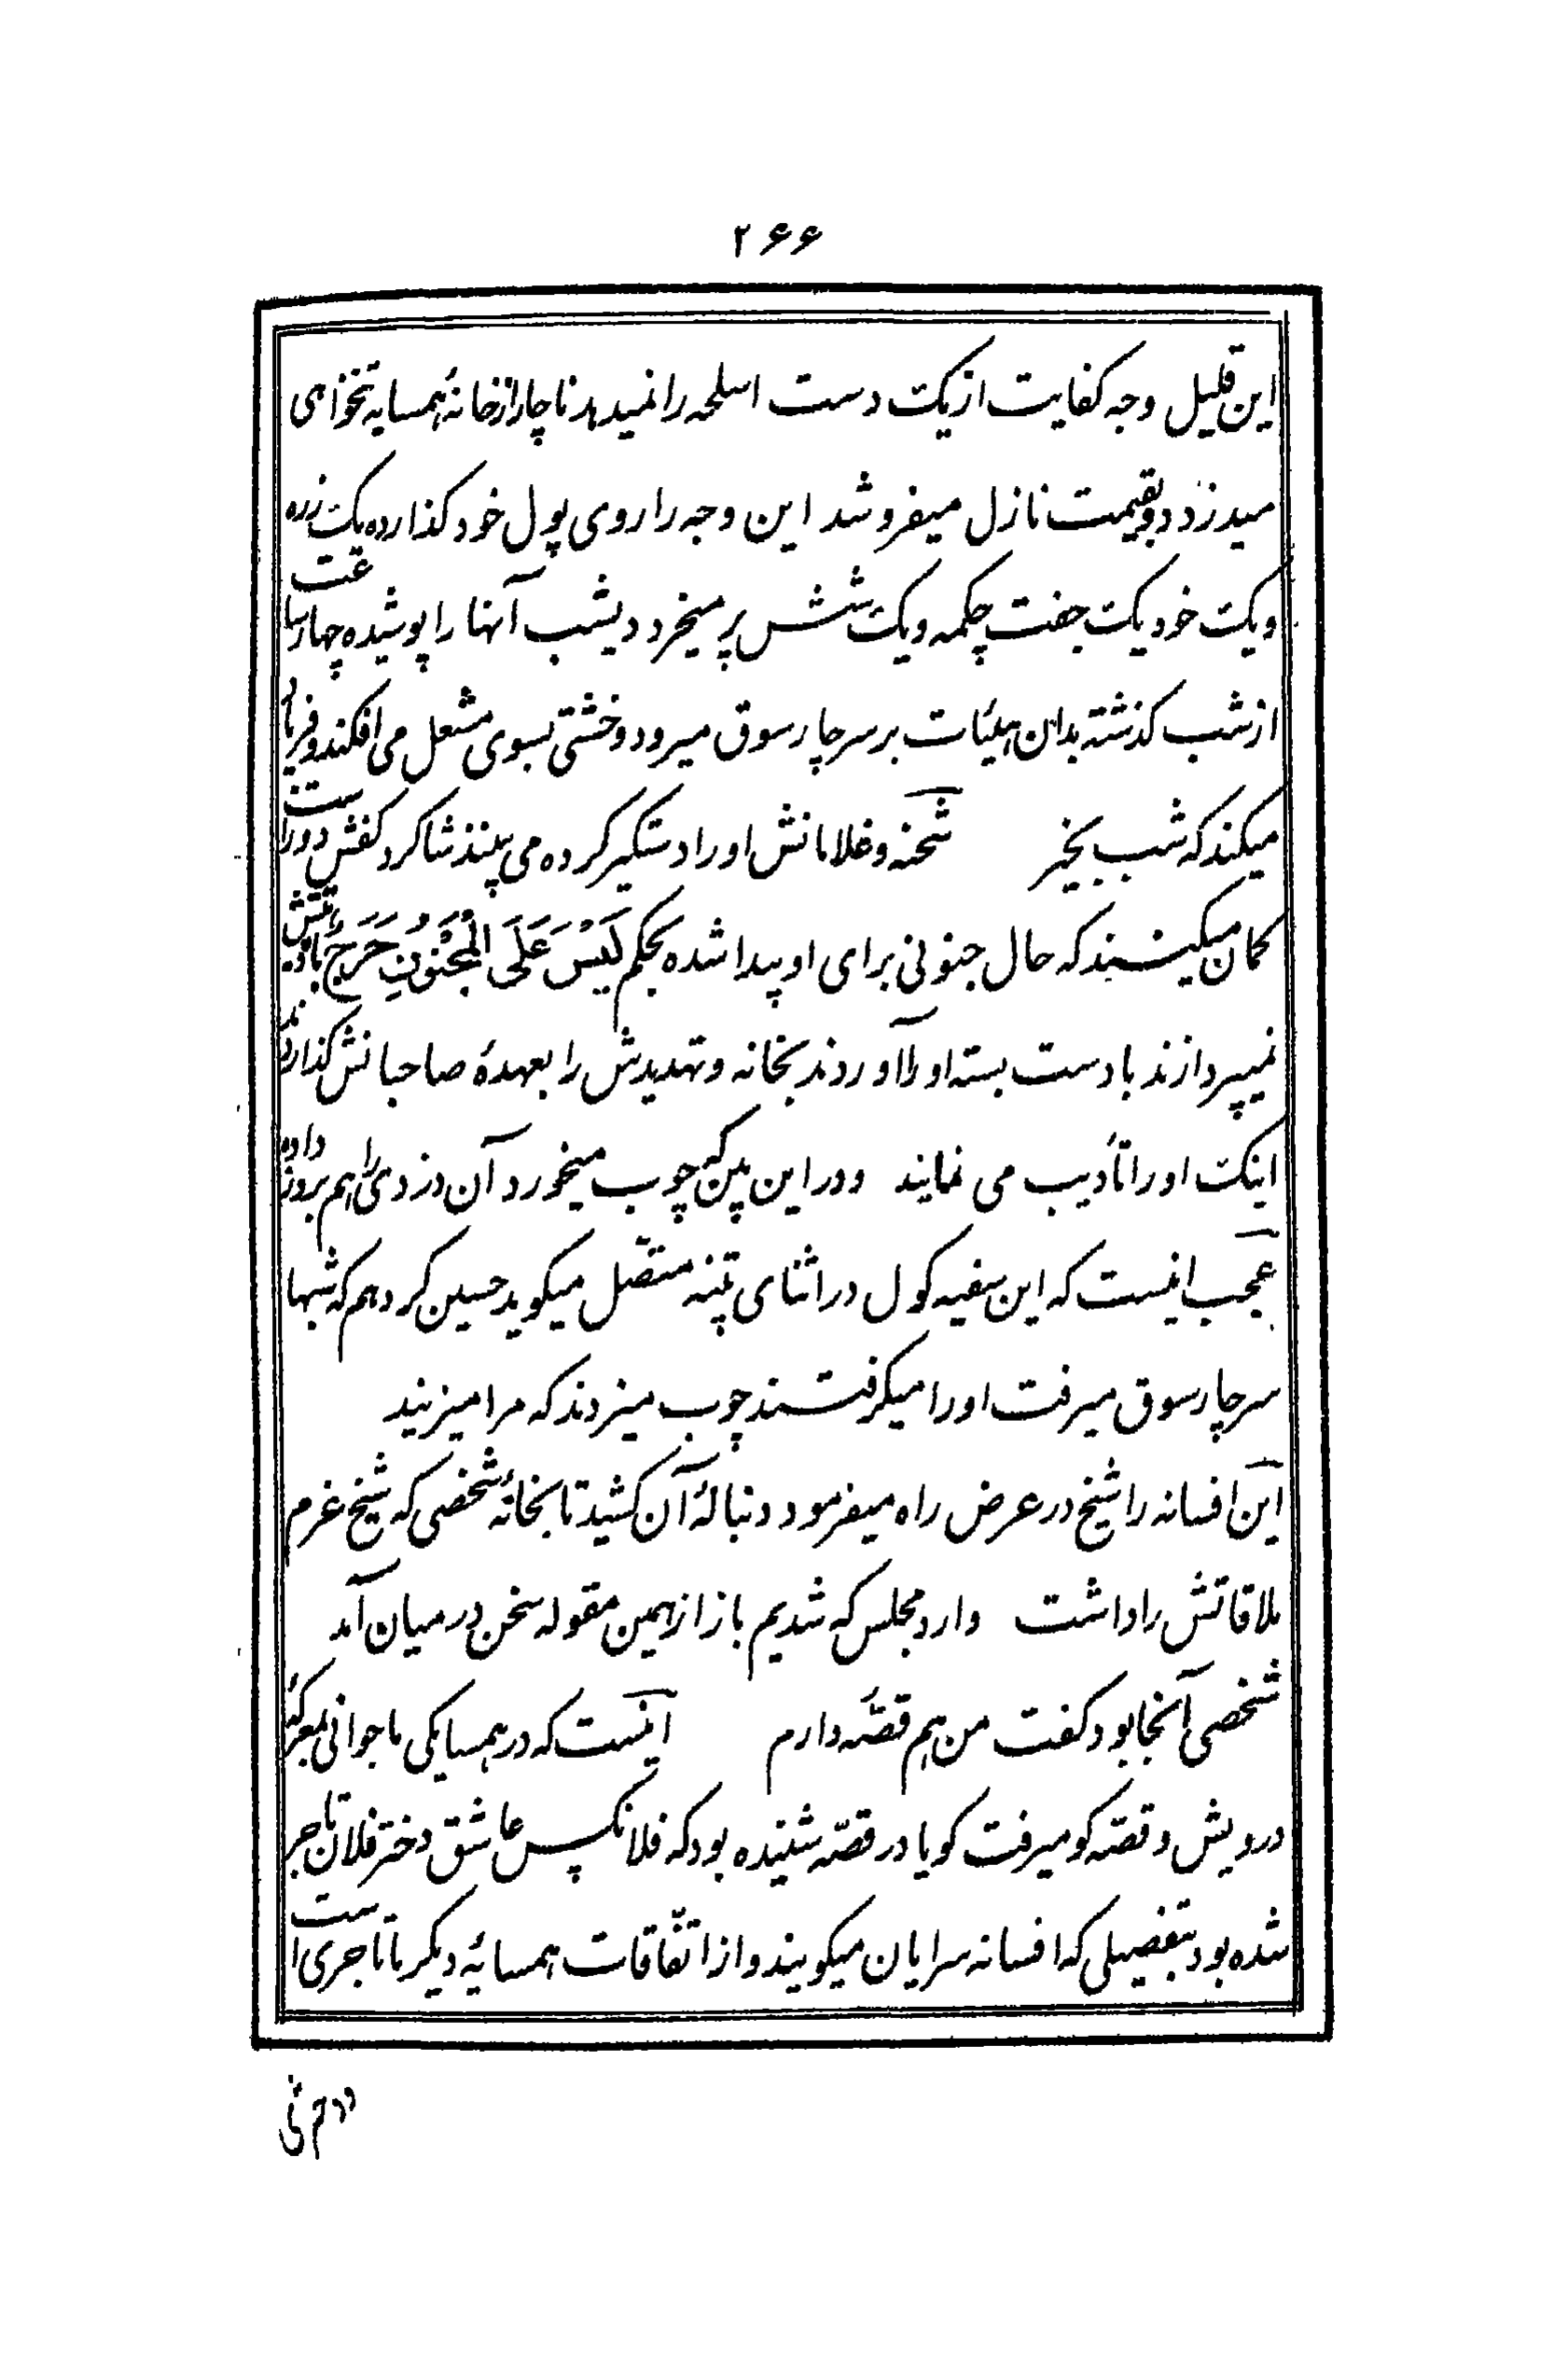 ۲۶۶
این قلیل وجه کفایت از یکت دست اسلحه را نمیدهد ناچار از خانهٔ همسایه تنخواهی
میدزدد و بقیمت نازل میفروشد این وجه را روی پول خود کذارده یکت زره
ویکت خود یکت جفت چکمه ویکت شش پر میخرد دیشب آنها را پوشیده چهار ساعت
از شب کذشته بدان هیئات بر سر چارسوق میرود و خشتی بسوی مشعل می افکند و فریاد
میکند که شب بخیر شحنه و غلامانش او را دستکیر کرده می بینند شاکرد کفش دوز است
کمان میکنند که حال جنونی برای او پیدا شده بحکم لَیْسَ عَلَی الْمَجْنُونِ حَرَجٌ باذیتش
نمیپردازند با دست بسته او را آوردند بخانه و تهدیدش را بعهدهٔ صاحبانش کذاردند
اینکت او را تأدیب می نمایند و در این بین که چوب میخورد آن دزدی را هم بروز داده
عجب اینست که این سفیه کول در اثنای تنبیه متّصل میکوید حسین کرد هم که شبها
سر چارسوق میرفت او را میکرفتند چوب میزدند که مرا میزنید
این افسانه را شیخ در عرض راه میفرمود دنبالهٔ آن کشید تا بخانهٔ شخصی که شیخ عزم
ملاقاتش را داشت وارد مجلس که شدیم باز از همین مقوله سخن در میان آمد
شخصی آنجا بود کفت من هم قصّهٔ دارم اینست که در همسایکی ما جوانی بمعرکهٔ
درویش و قصّه کو میرفت کویا در قصّه شنیده بود که فلانکس عاشق دختر فلان تاجر
شده بود بتفصیلی که افسانه سرایان میکویند و از اتّفاقات همسایهٔ دیکر ما تاجری است